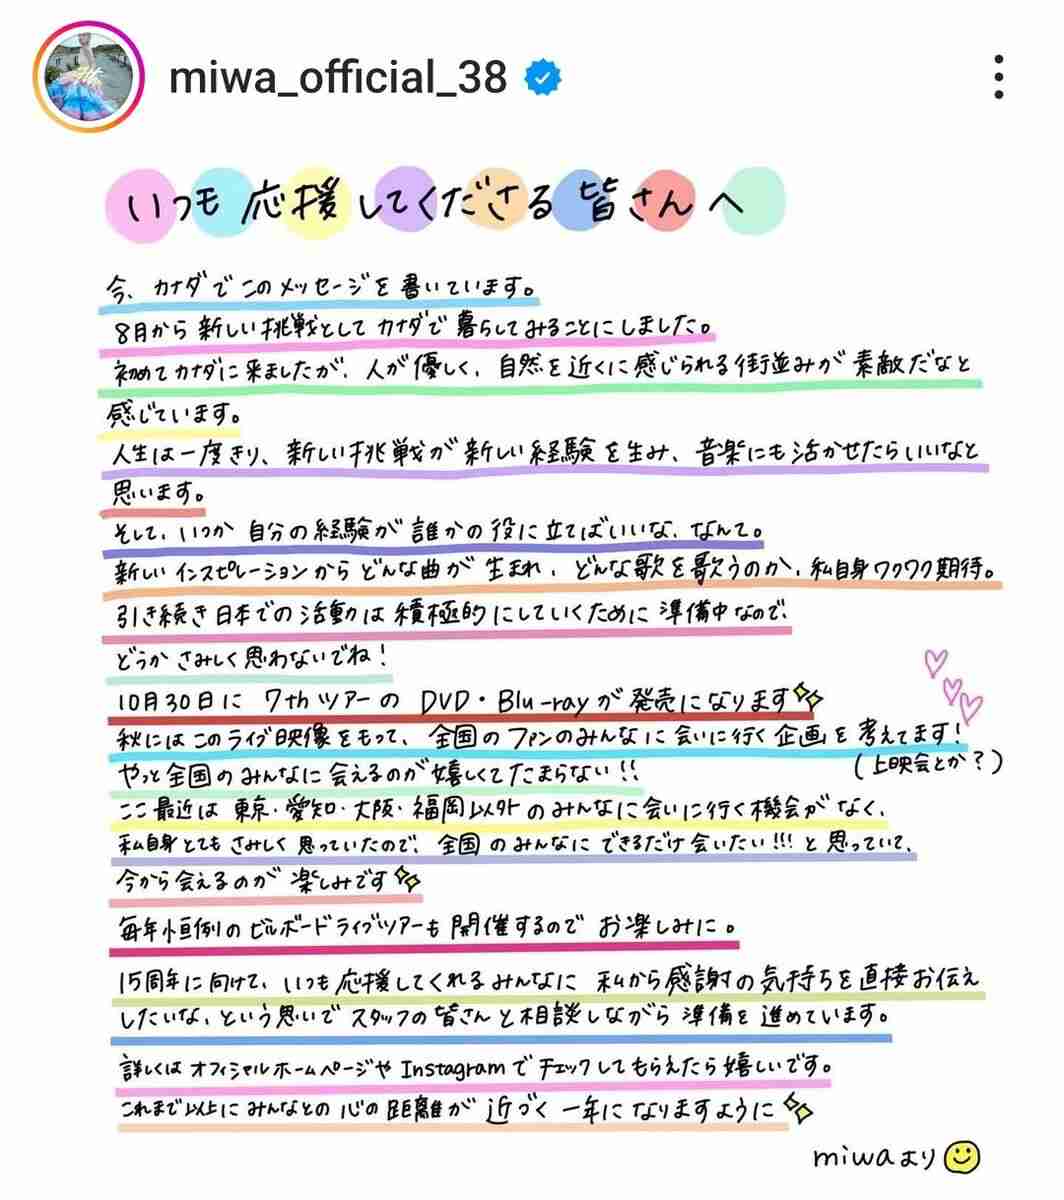 miwa_official_38
いつも応援してくださる皆さんへ
今、カナダでこのメッセージを書いています。
8月から新しい挑戦としてカナダで暮らしてみることにしました。
初めてカナダに来ましたが、人が優しく、自然を近くに感じられる街並みが素敵だなと
感じています。
人生は一度きり、新しい挑戦が新しい経験を生み、音楽にも活かせたらいいなと
思います。
そして、いつか自分の経験が誰かの役に立てばいいな、なんて。
新しいインスピレーションからどんな曲が生まれ、どんな歌を歌うのか、私自身ワクワク期待。
引き続き日本での活動は積極的にしていくために準備中なので、
どうかさみしく思わないでね!
10月30日に 7thツアーの DVD・Blu-rayが発売になります
秋にはこのライブ映像をもって、全国のファンのみんなに会いに行く企画を考えてます!
(上映会とか?)
やっと全国のみんなに会えるのが嬉しくてたまらない!!
ここ最近は東京・愛知・大阪・福岡以外のみんなに会いに行く機会がなく、
私自身とてもさみしく思っていたので、全国のみんなにできるだけ会いたい!!!と思っていて、
今から会えるのが楽しみです
毎年恒例のビルボードライブツアーも開催するのでお楽しみに。
15周年に向けて、いつも応援してくれるみんなに私から感謝の気持ちを直接お伝え
したいな、という思いでスタッフの皆さんと相談しながら準備を進めています。
詳しくはオフィシャルホームページやInstagramでチェックしてもらえたら嬉しいです。
これまで以上にみんなとの心の距離が近づく一年になりますように
miwaより